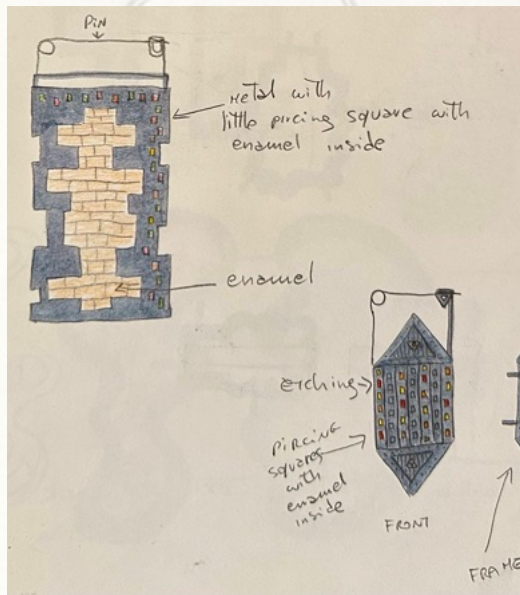 PIN
Metal with
little pircing square with
enamel inside
enamel
etching
PIRCING
squares
with
enamel
inside
FRONT
FRAME